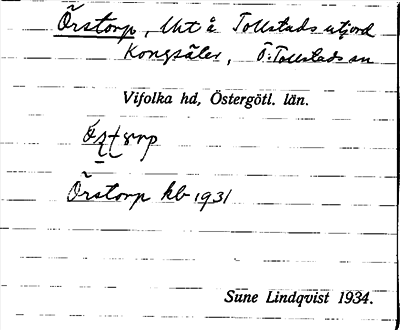 Örstorp, Uht å Tollstads utjord
Kongsäler, Ö. Tollstads sn
Vifolka hd, Östergötl. län.
Örstorp kb 1931
Sune Lindqvist 1934.